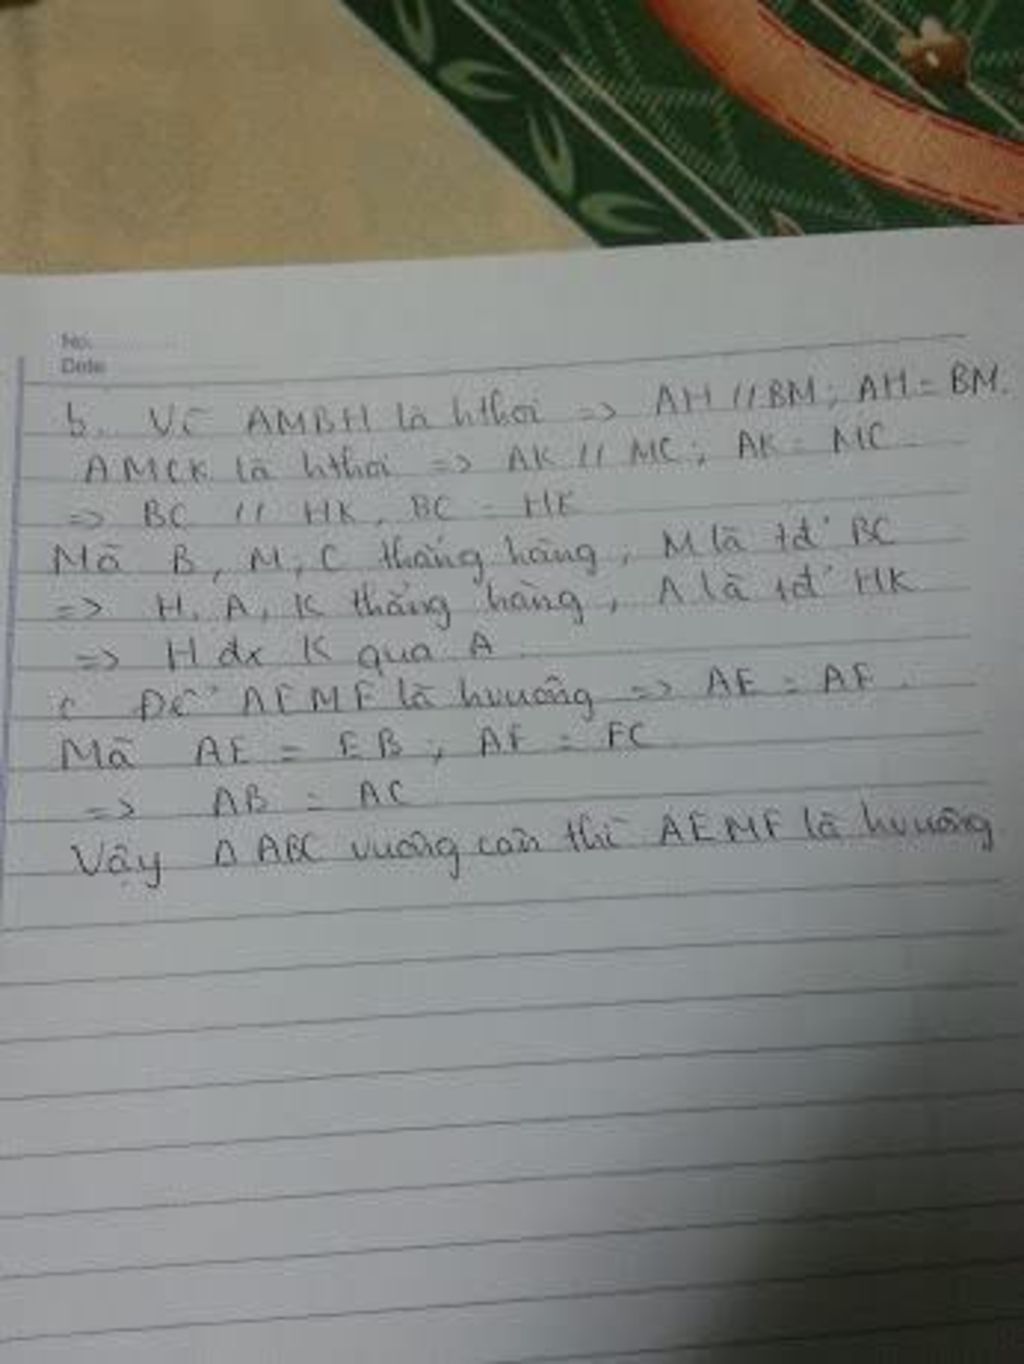 No.
Date
b. Vì AMBH là hthoi => AH // BM; AH = BM.
AMCK là hthoi => AK // MC; AK = MC
=> BC // HK, BC = HK
Mà B, M, C thẳng hàng, M là tđ' BC
=> H, A, K thẳng hàng, A là tđ' HK
=> H đx K qua A
c Để AEMF là hvuông => AE = AF.
Mà AE = EB; AF = FC
=> AB = AC
Vậy Δ ABC vuông cân thì AEMF là hvuông